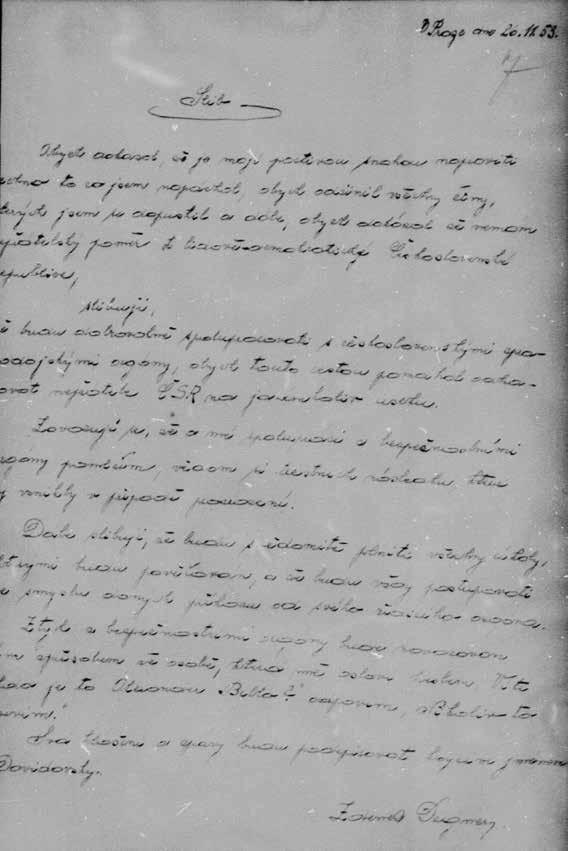 V Praze dne 20.11.53.
7
Slib
Abych dokázal, že je mojí poctivou snahou napraviti
to co jsem napáchal, abych odčinil všechny činy,
kterých jsem se dopustil a dále, abych dokázal že nemám
nepřátelský poměr k lidově-demokratické Československé
republice,
slibuji,
že budu dobrovolně spolupracovati s československými zpra-
vodajskými orgány, abych touto cestou pomáhal
nepřátele ČSR na jakémkoliv úseku.
Zavazuji se, že o mé spolupráci s bezpečnostními
orgány pomlčím, vědom si následků, které
by vznikly v případě porušení.
Dále slibuji, že budu svědomitě plniti všechny úkoly,
kterými budu pověřován, a že budu vždy postupovati
ve smyslu daných příkazů od svého řídícího orgána.
Styk s bezpečnostními orgány bude navazován
způsobem že osobě, která mě osloví heslem
je to odpovím,
Svá hlášení a zprávy budu podepisovat krycím jménem
Davidovský.
Zdeněk